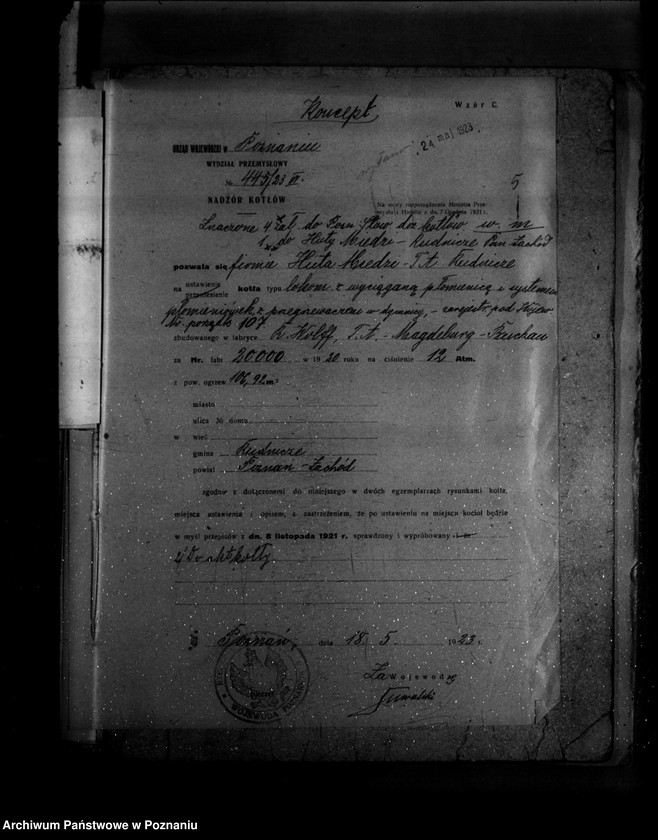 Koncept
Wzór C.
URZĄD WOJEWÓDZKI w Poznaniu
24 maj 1923
WYDZIAŁ PRZEMYSŁOWY
№ 445/23 VI.
5
NADZÓR KOTŁÓW
Na mocy rozporządzenia Ministra Prze-
mysłu i Handlu z dn. 7 grudnia 1921 r.
Znaczone 4 Zał do Pozn. Stow doz kotłów w. m
1 do Huty Miedzi - Rudnicze Pozn Zachód
pozwala się firmie Huta Miedzi - T.A Rudnicze
na ustawienie kotła typu lokom. z wyciąganą płomienicą i systemem
przeniesienie
płomieniówek z przegrzewaczem w dymnicy, - zarejestr. pod
Nr. porząd. 107
zbudowanego w fabryce R. Wolff, T.A. - Magdeburg - Buckau
za Nr. fabr 20000 w 1920 roku na ciśnienie 12 Atm.
z pow. ogrzew 106,92 m²
miasto
ulica № domu
w wieś
gmina Rudnicze
powiat Poznań - Zachód
zgodnie z dołączonemi do niniejszego w dwóch egzemplarzach rysunkami kotła,
miejsca ustawienia i opisem, z zastrzeżeniem, że po ustawieniu na miejscu kocioł będzie
w myśl przepisów z dn. 8 listopada 1921 r. sprawdzony i wypróbowany
Poznań, dnia 18 5 1923 r.
Za Wojewodę
WOJEWODA POZNAŃSKI
Archiwum Państwowe w Poznaniu